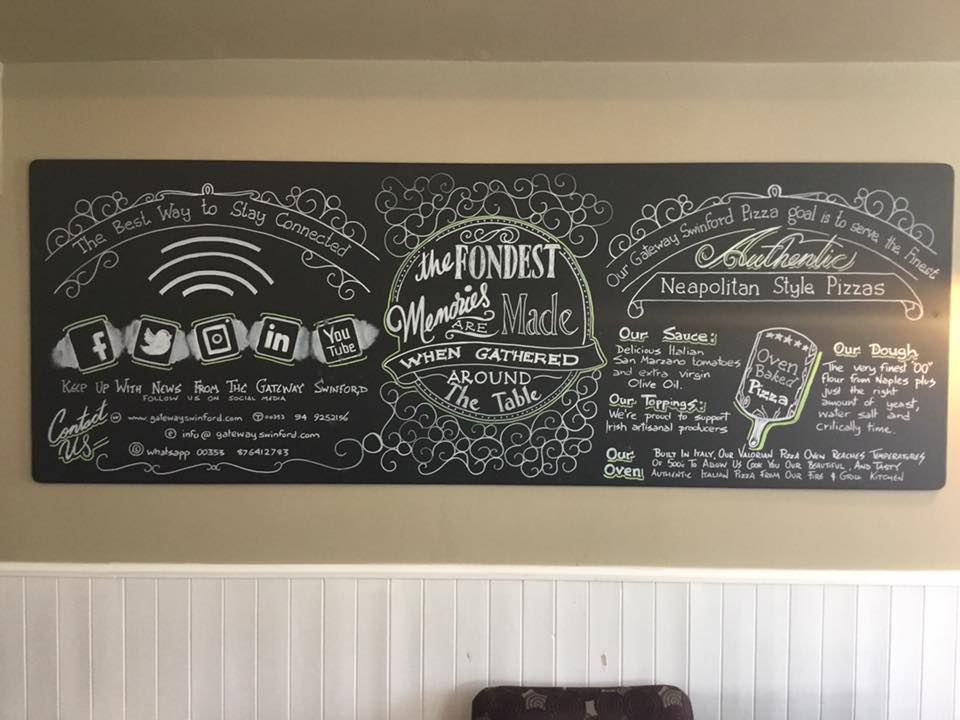 The Best Way to Stay Connected
f
in
You
Tube
Keep Up With News From The Gateway Swinford
Follow us on social media
Contact
Us
www.gatewayswinford.com
00353 94 9252156
info@gatewayswinford.com
whatsapp 00353 876412783
the FONDEST
Memories
ARE Made
WHEN GATHERED
AROUND
The Table
Our Gateway Swinford Pizza goal is to serve the finest
Authentic
Neapolitan Style Pizzas
Our Sauce:
Delicious Italian
San Marzano tomatoes
and extra virgin
Olive Oil.
Our Toppings:
We're proud to support
Irish artisanal producers
Oven
Baked
Pizza
Our Dough
The very finest "00"
flour from Naples plus
just the right
amount of yeast,
water salt and
critically time.
Our
Oven
Built in Italy, Our Valorian Pizza Oven Reaches Temperatures
Of 500c To Allow Us Cook You Our Beautiful, And Tasty
Authentic Italian Pizza From Our Fire & Grill Kitchen